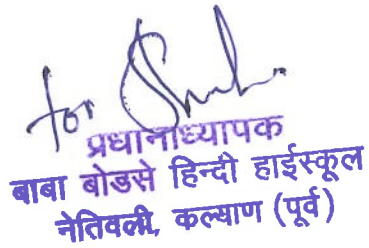 for
प्रधानाध्यापक
बाबा बोडसे हिन्दी हाईस्कूल
नेतिवली, कल्याण (पूर्व)